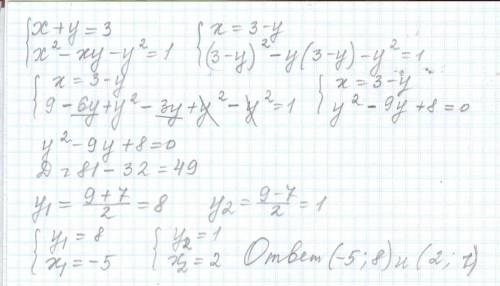 {x+y=3 {x=3-y
x²-xy-y²=1 (3-y)²-y(3-y)-y²=1
{x=3-y {x=3-y
9-6y+y²-3y+y²-y²=1 y²-9y+8=0
y²-9y+8=0
D=81-32=49
y₁=(9+7)/2=8 y₂=(9-7)/2=1
{y₁=8 {y₂=1
x₁=-5 x₂=2 Ответ (-5;8) и (2;1)